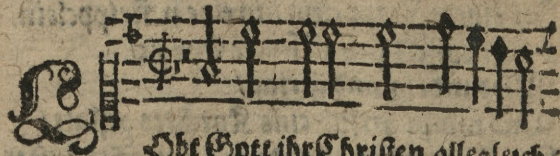 LObt Gott ihr Christen allegleich